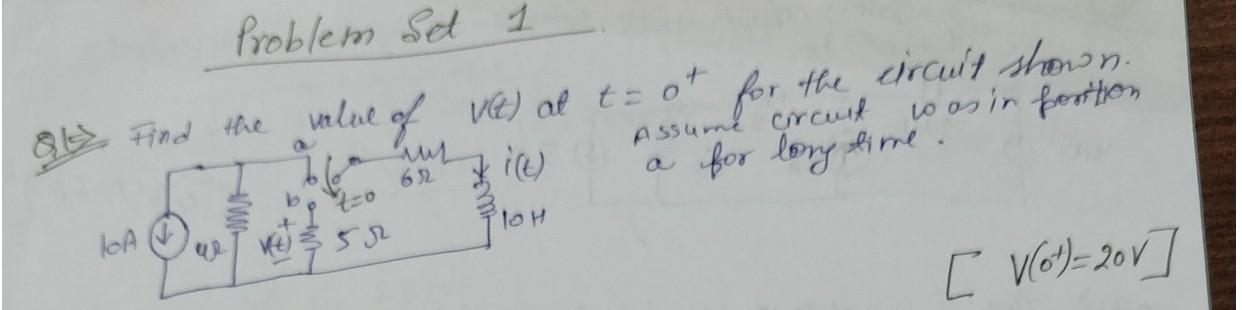 Problem Set 1
Q1⇒ Find the value of V(t) at t = 0⁺ for the circuit shown.
Assume circuit was in position
a for long time.
a
6Ω
i(t)
b
t=0
10H
10A
4Ω
+
V(t)
-
5Ω
[ V(0⁺)=20V ]